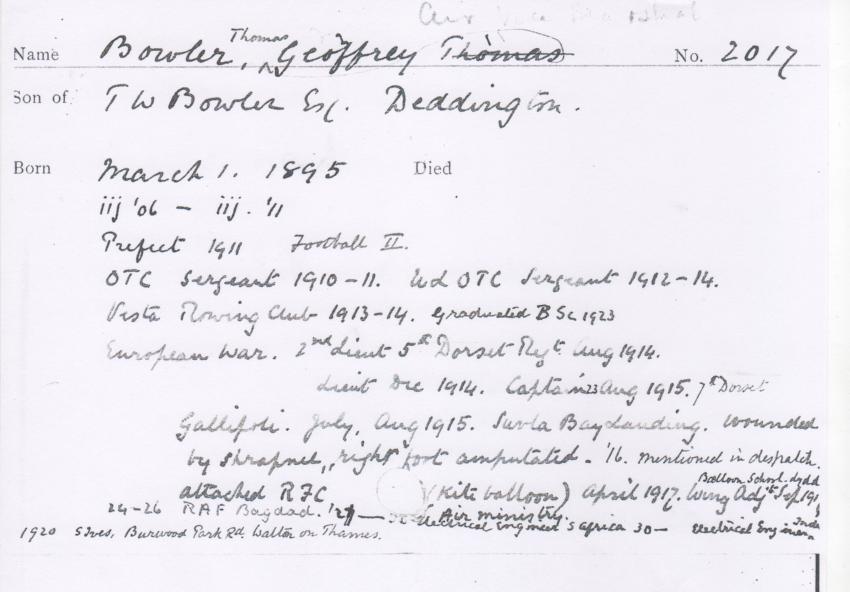 Air Vice Marshal
Name Bowler, Thomas Geoffrey Thomas No. 2017
Son of T W Bowler Esq. Deddington.
Born March 1. 1895 Died
iij '06 – iij. '11
Prefect 1911 Football II.
OTC Sergeant 1910–11. Ud OTC Sergeant 1912–14.
Vesta Rowing Club 1913–14. Graduated BSc 1923
European War. 2nd Lieut 5th Dorset Regt. Aug 1914.
Lieut Dec 1914. Captain 23 Aug 1915. 7th Dorset
Gallipoli. July, Aug 1915. Suvla Bay Landing. Wounded
by shrapnel, right foot amputated. – '16. mentioned in despatch.
Balloon School.
attached RFC (Kite balloon) April 1917. Wing Adjt Sep 191
24–26 RAF Bagdad. Air ministry.
Electrical Engineer S Africa 30– Electrical Engineer
1920 St Ives, Burwood Park Rd. Walton on Thames.